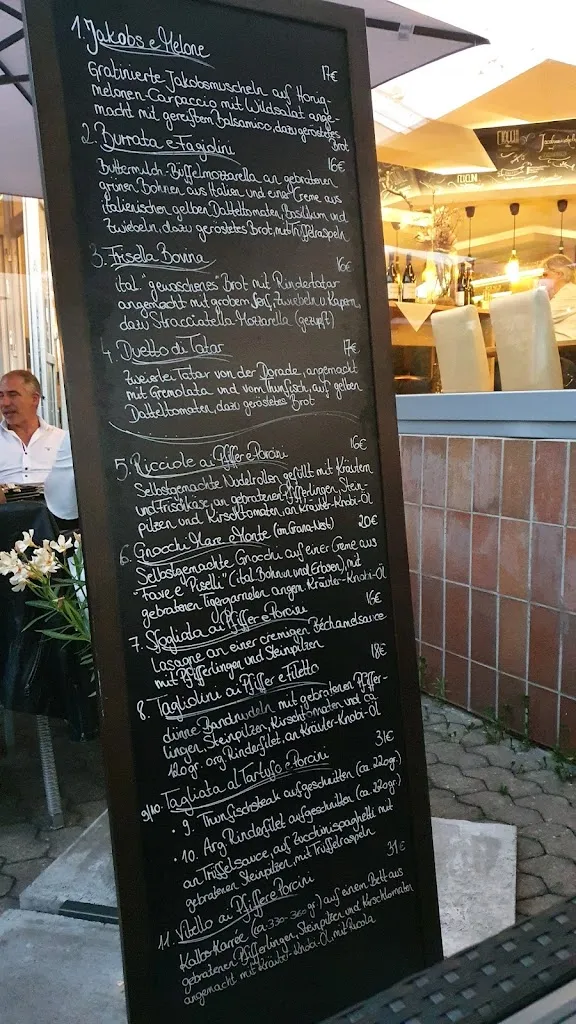 1. Jakobs e Melone
17€
Gratinierte Jakobsmuscheln auf Honig-
melonen-Carpaccio mit Wildsalat ange-
macht mit gereiftem Balsamico, dazu geröstetes
Brot
2. Burrata e Fagiolini
16€
Buttermilch-Büffelmozzarella an gebratenen
grünen Bohnen aus Italien und einer Creme aus
italienischen gelben Datteltomaten, Basilikum und
Zwiebeln, dazu geröstetes Brot, mit Trüffelraspeln
3. Frisella Bovina
16€
ital. "gewaschenes" Brot mit Rindertatar
angemacht mit grobem Senf, Zwiebeln u. Kapern,
dazu Stracciatella-Mozzarella (gezupft)
4. Duetto di Tatar
17€
Zweierlei Tatar von der Dorade, angemacht
mit Gremolata und vom Thunfisch, auf gelben
Datteltomaten, dazu geröstetes Brot
5. Ricciole ai Pfiffer e Porcini
16€
Selbstgemachte Nudelrollen gefüllt mit Kräutern
und Frischkäse, an gebratenen Pfifferlingen, Stein-
pilzen und Kirschtomaten, an Kräuter-Knobi-Öl
6. Gnocchi Mare e Monte (im Grana-Nest)
20€
Selbstgemachte Gnocchi auf einer Creme aus
"Fave e Piselli" (ital. Bohnen und Erbsen), mit
gebratenen Tigergarnelen angem. Kräuter-Knobi-Öl
7. Sfogliata ai Pfiffer e Porcini
16€
Lasagne an einer cremigen Béchamelsauce
mit Pfifferlingen und Steinpilzen
8. Tagliolini ai Pfiffer e Filetto
18€
dünne Bandnudeln mit gebratenen Pfiffer-
lingen, Steinpilzen, Kirschtomaten und ca.
120gr. arg. Rinderfilet, an Kräuter-Knobi-Öl
9/10. Tagliata al Tartufo e Porcini
31€
• 9. Thunfischsteak aufgeschnitten (ca. 220gr.)
• 10. Arg. Rinderfilet aufgeschnitten (ca. 220gr.)
an Trüffelsauce, auf Zucchinispaghetti mit
gebratenen Steinpilzen, mit Trüffelraspeln
11. Vitello ai Pfiffer e Porcini
31€
Kalbs-Karrée (ca. 330-360gr.) auf einem Bett aus
gebratenen Pfifferlingen, Steinpilzen und Kirschtomaten
angemacht mit Kräuter-Knobi-Öl, mit Rucola